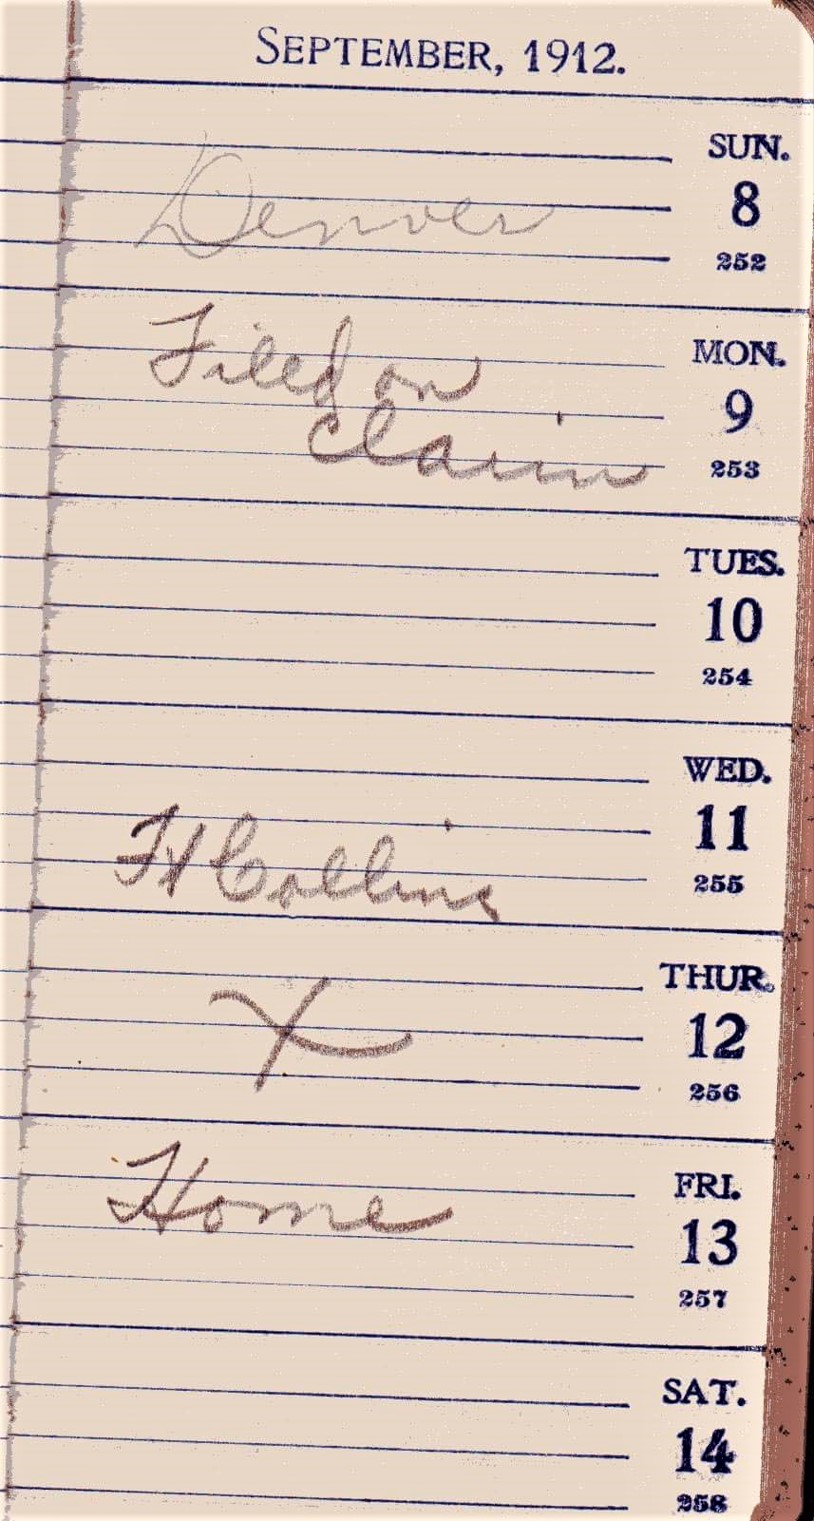 SEPTEMBER, 1912.
SUN.
8
252
Denver
MON.
9
253
Filed on
claim
TUES.
10
254
WED.
11
255
Ft Collins
THUR.
12
256
X
FRI.
13
257
Home
SAT.
14
258